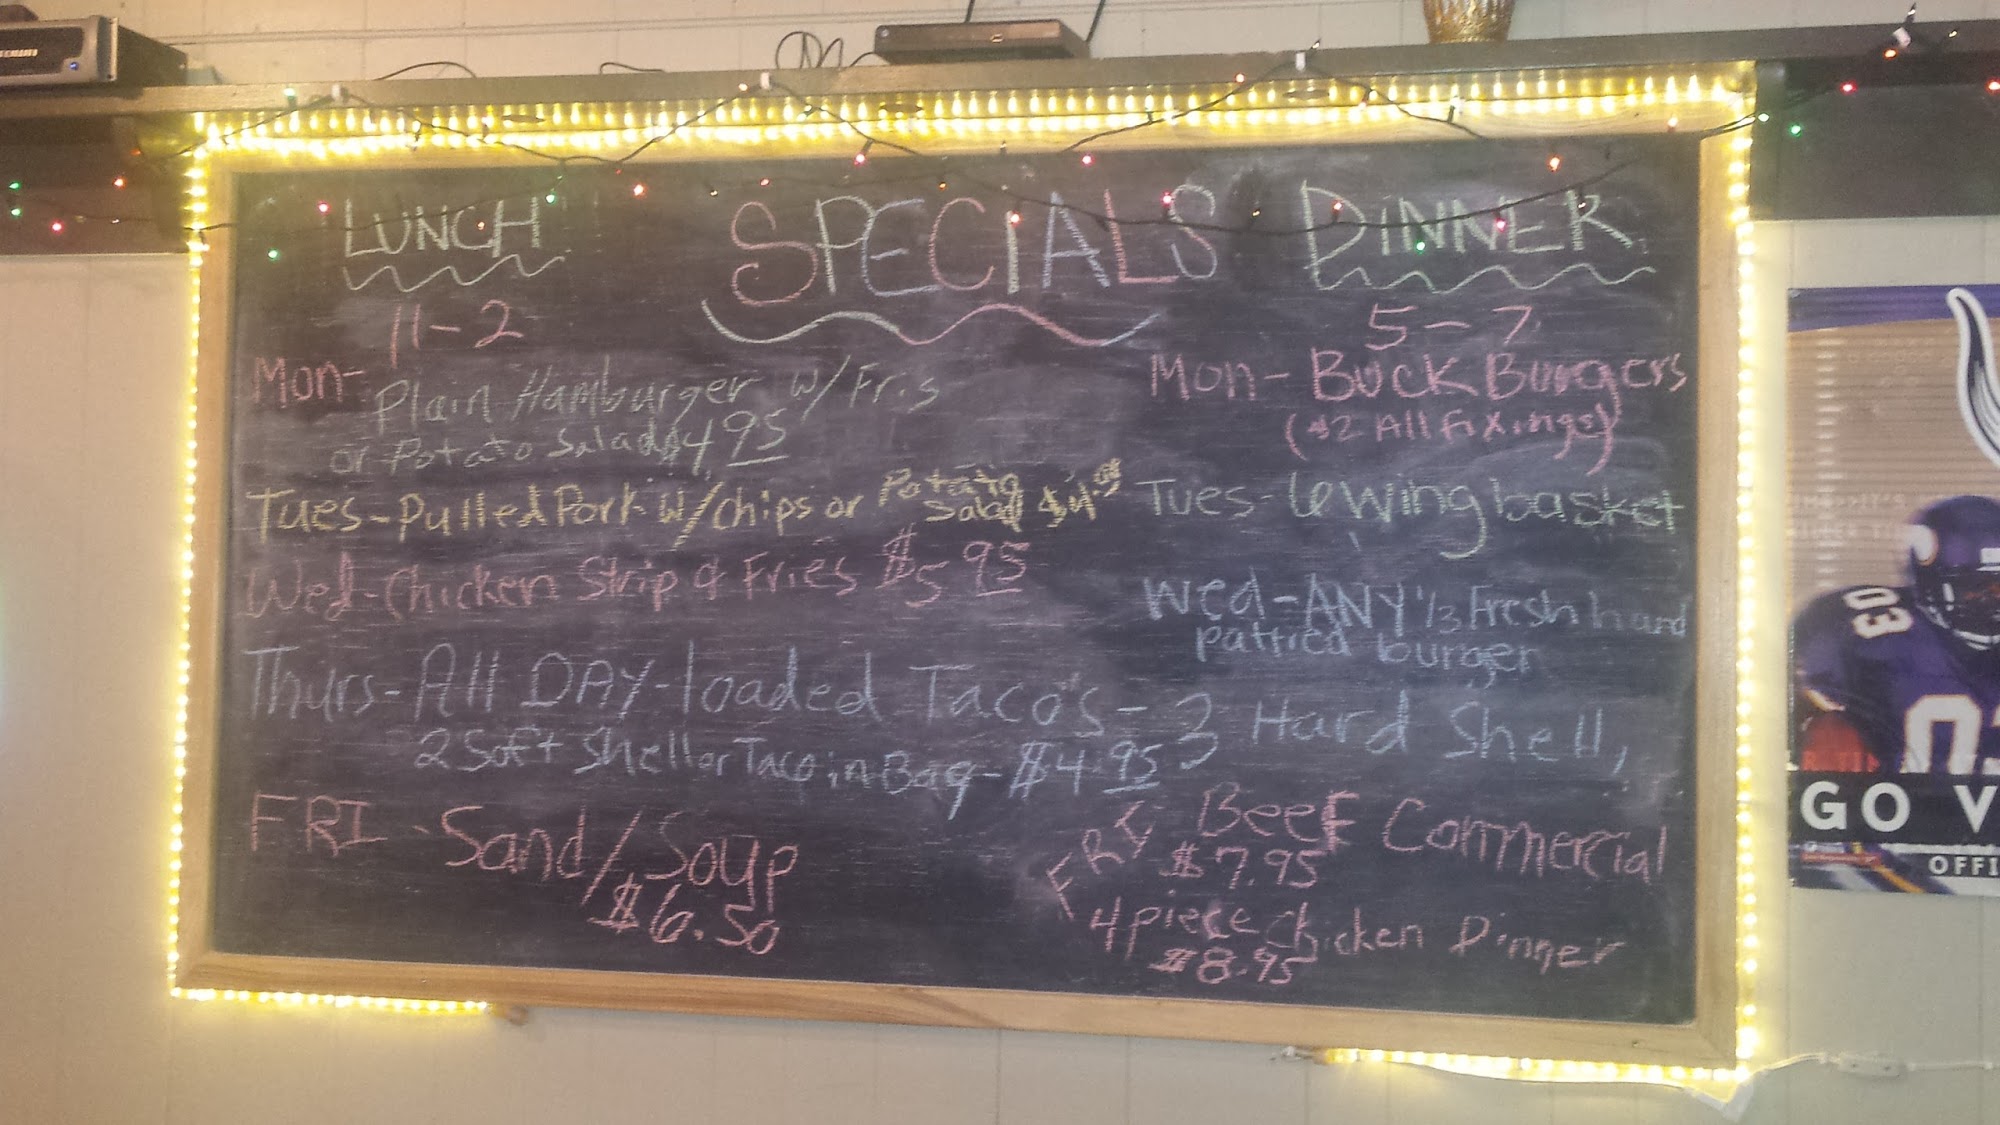 LUNCH
SPECIALS
DINNER
11-2
5-7
Mon- Plain Hamburger w/ Fris
or Potato Salad $4 95
Tues- Pulled Pork w/chips or Potato
Salad $4.95
Wed- Chicken Strip & Fries $5 95
Mon- Buck Burgers
($2 All Fixings)
Tues- 6 wing basket
Wed- ANY 1/3 Fresh hand
pattied burger
Thurs- All DAY- loaded Taco's - 3 Hard Shell,
2 Soft Shell or Taco in Bag - $4.95
FRI - Sand/Soup
$6.50
FRI Beef Commercial
$7.95
4 piece Chicken Dinner
$8.95
03
03
GO V
OFFI